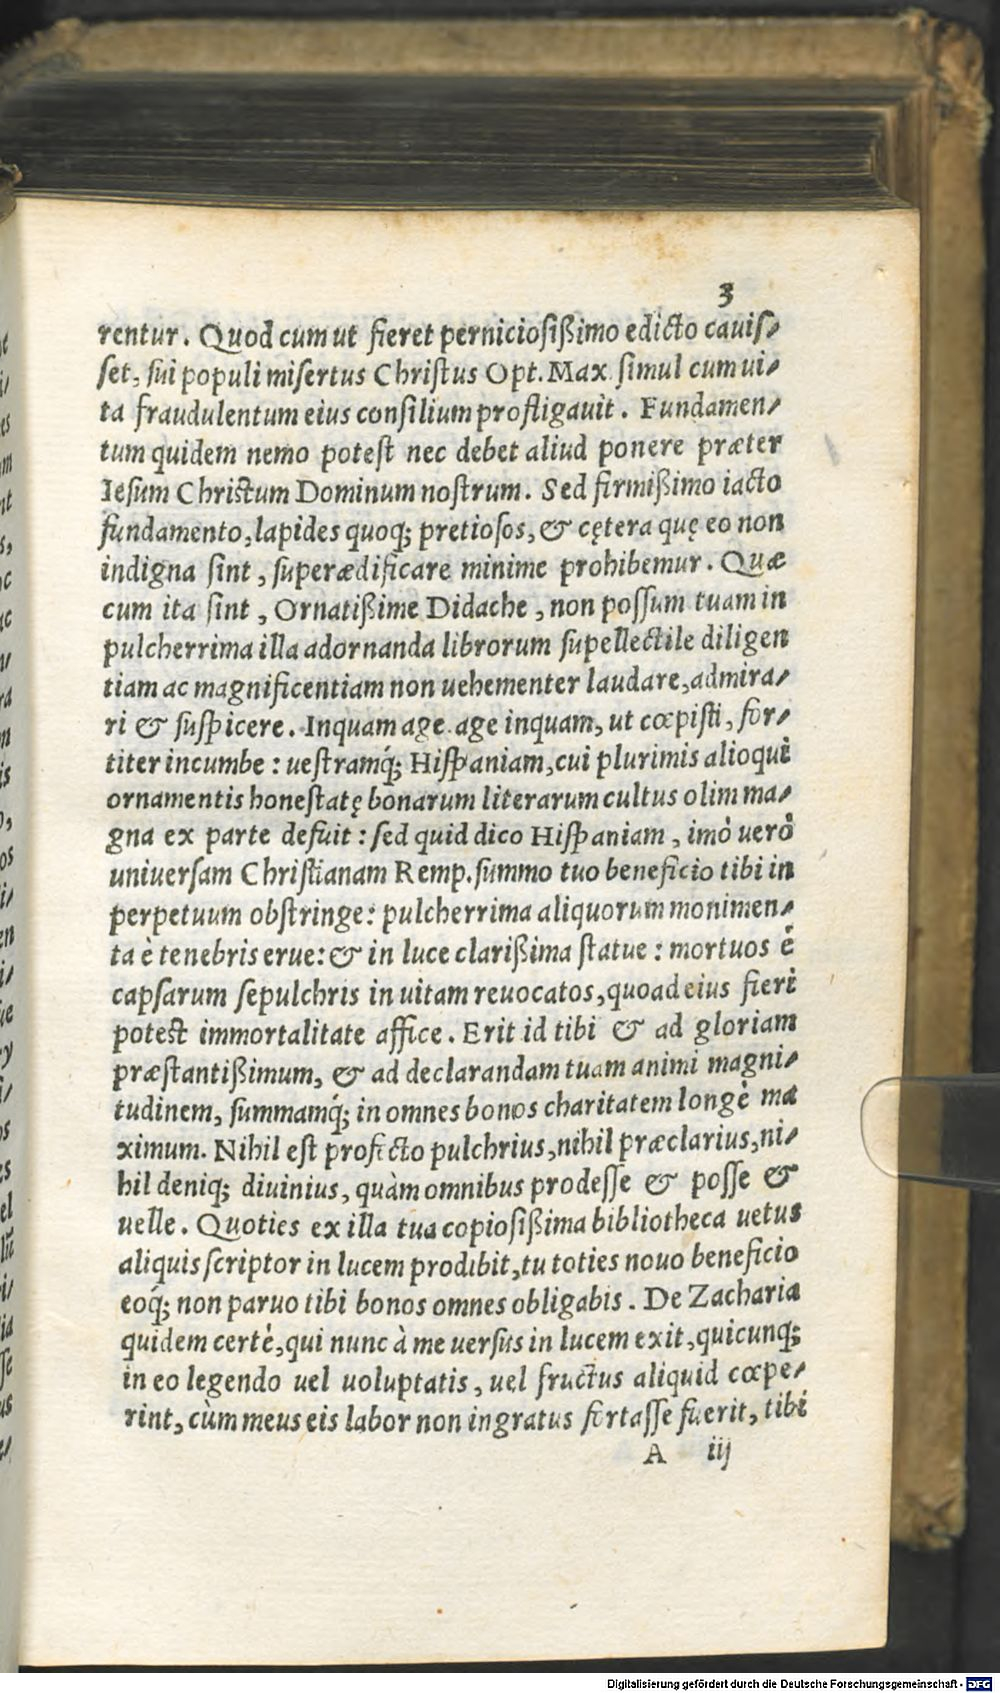 3
rentur. Quod cum ut fieret perniciosißimo edicto cauis⸗
set, sui populi misertus Christus Opt. Max simul cum ui⸗
ta fraudulentum eius consilium profligauit. Fundamen⸗
tum quidem nemo potest nec debet aliud ponere præter
Iesum Christum Dominum nostrum. Sed firmißimo iacto
fundamento, lapides quoq; pretiosos, & cętera quę eo non
indigna sint, superædificare minime prohibemur. Quæ
cum ita sint, Ornatißime Didache, non possum tuam in
pulcherrima illa adornanda librorum supellectile diligen
tiam ac magnificentiam non uehementer laudare, admira⸗
ri & suspicere. Inquam age age inquam, ut cœpisti, for⸗
titer incumbe: uestramq́; Hispaniam, cui plurimis alioqui
ornamentis honestatę bonarum literarum cultus olim ma⸗
gna ex parte defuit: sed quid dico Hispaniam, imò uerò
uniuersam Christianam Remp. summo tuo beneficio tibi in
perpetuum obstringe: pulcherrima aliquorum monimen⸗
ta è tenebris erue: & in luce clarißima statue: mortuos è
capsarum sepulchris in uitam reuocatos, quoad eius fieri
potest immortalitate affice. Erit id tibi & ad gloriam
præstantißimum, & ad declarandam tuam animi magni⸗
tudinem, summamq́; in omnes bonos charitatem longè ma
ximum. Nihil est profecto pulchrius, nihil præclarius, ni⸗
hil deniq; diuinius, quàm omnibus prodesse & posse &
uelle. Quoties ex illa tua copiosißima bibliotheca uetus
aliquis scriptor in lucem prodibit, tu toties nouo beneficio
eoq́; non paruo tibi bonos omnes obligabis. De Zacharia
quidem certè, qui nunc à me uersus in lucem exit, quicunq;
in eo legendo uel uoluptatis, uel fructus aliquid cœpe⸗
rint, cùm meus eis labor non ingratus fortasse fuerit, tibi
A iij
Digitalisierung gefördert durch die Deutsche Forschungsgemeinschaft - DFG